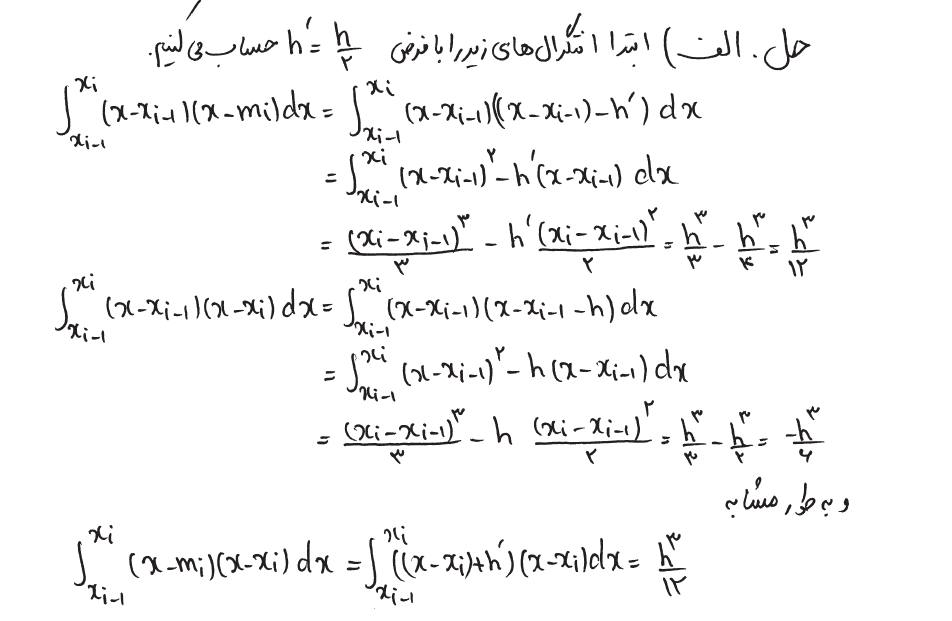 حل. الف) ابتدا انتگرال‌های زیر را با فرض h' = h/۲ حساب می کنیم.
∫_{x_{i-1}}^{x_i} (x-x_{i-1})(x-m_i) dx = ∫_{x_{i-1}}^{x_i} (x-x_{i-1})((x-x_{i-1})-h') dx
= ∫_{x_{i-1}}^{x_i} (x-x_{i-1})^۲ - h'(x-x_{i-1}) dx
= (x_i-x_{i-1})^۳/۳ - h' (x_i-x_{i-1})^۲/۲ = h^۳/۳ - h^۳/۴ = h^۳/۱۲
∫_{x_{i-1}}^{x_i} (x-x_{i-1})(x-x_i) dx = ∫_{x_{i-1}}^{x_i} (x-x_{i-1})(x-x_{i-1}-h) dx
= ∫_{x_{i-1}}^{x_i} (x-x_{i-1})^۲ - h(x-x_{i-1}) dx
= (x_i-x_{i-1})^۳/۳ - h (x_i-x_{i-1})^۲/۲ = h^۳/۳ - h^۳/۲ = -h^۳/۶
و به طور مشابه
∫_{x_{i-1}}^{x_i} (x-m_i)(x-x_i) dx = ∫_{x_{i-1}}^{x_i} ((x-x_i)+h')(x-x_i) dx = h^۳/۱۲